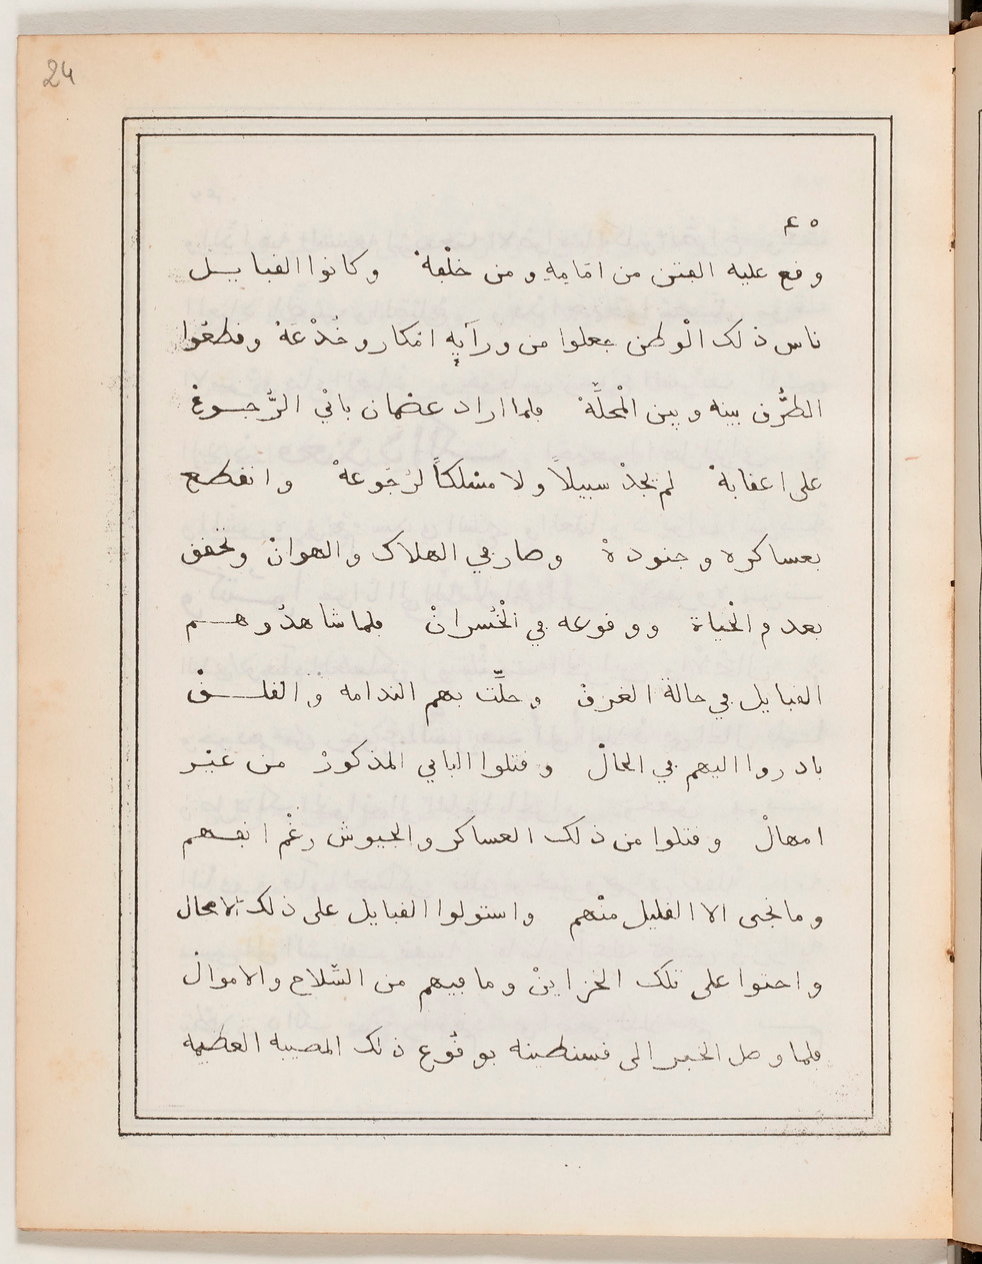 24
٤٥
وقع عليه الفتن من امَامِهِ ومن خلْفِهْ وكانوا القبايـــل
ناس ذلك الْوطن جعلوا من ورآيِهِ امْكار وخُدْعَهْ وقطعُوا
الطُّرْق بينه وبين الْمحلَّهْ فلما اراد عضمان بايْ الرُّجـــوعْ
على اعقابهْ لم يجدْ سبيلاً ولا مسْلكاً لرُجُوعهْ وانقطـع
بعساكره وجنودهْ وصار في الهلاك والهوانْ وتحقق
بعدم الْحياة ووقوعه في الْخُسرانْ فلما شاهدُوهـــم
القبايل في حالة الغرقْ وحلَّت بهم الندامه والقلـــقْ
بادروا اليهم في الحالْ وقتلوا الباي المذكورْ من غيْر
امهالْ وقتلوا من ذلك العساكر والجيوش رغْم انفـهم
وما نجى الا القليل منْهم واستولوا القبايل على ذلك الامحال
واحتوا على تلك الخزاينْ وما فيهم من السّلاح والاموالْ
فلما وصل الخبر الى قسنطينه بوقُوع ذلك المصيبه العظيمه